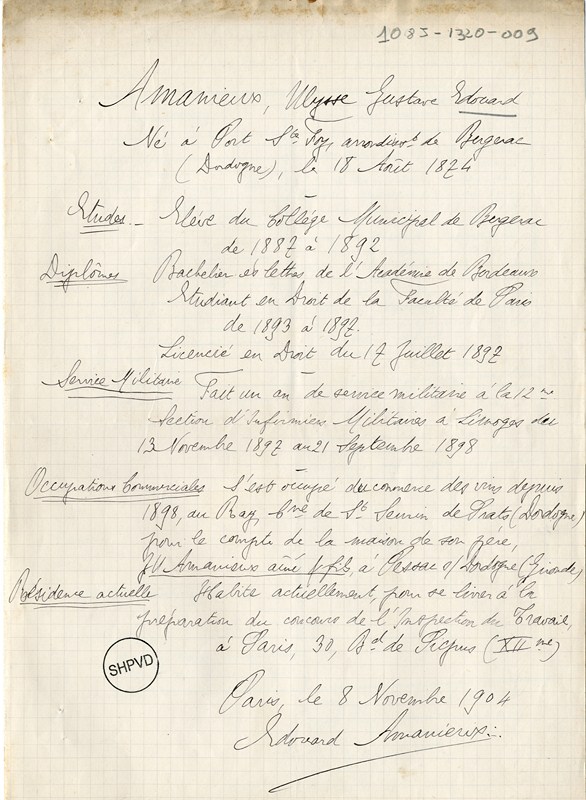 1085-1320-009
Amanieux, Ulysse Gustave Edouard
Né à Port Ste Foy, arrondismt de Bergerac
(Dordogne), le 18 Août 1874
Etudes. - Elève du Collège Municipal de Bergerac
de 1887 à 1892
Diplômes Bachelier es lettres de l'Académie de Bordeaux
Etudiant en Droit de la Faculté de Paris
de 1893 à 1897.
Licencié en Droit du 17 Juillet 1897
Service Militaire Fait un an de service militaire à la 12me
Section d'Infirmiers Militaires à Limoges du
13 Novembre 1897 au 21 Septembre 1898
Occupations Commerciales S'est occupé du commerce des vins depuis
1898, au Ray, Cne de St Seurin de Prats (Dordogne)
pour le compte de la maison de son père,
Amanieux aîné & fils à Pessac s/Dordogne (Gironde)
Résidence actuelle Habite actuellement, pour se livrer à la
préparation du concours de l'Inspection du Travail,
à Paris, 30, Bd de Picpus (XIIme)
SHPVD
Paris, le 8 Novembre 1904
Edouard Amanieux